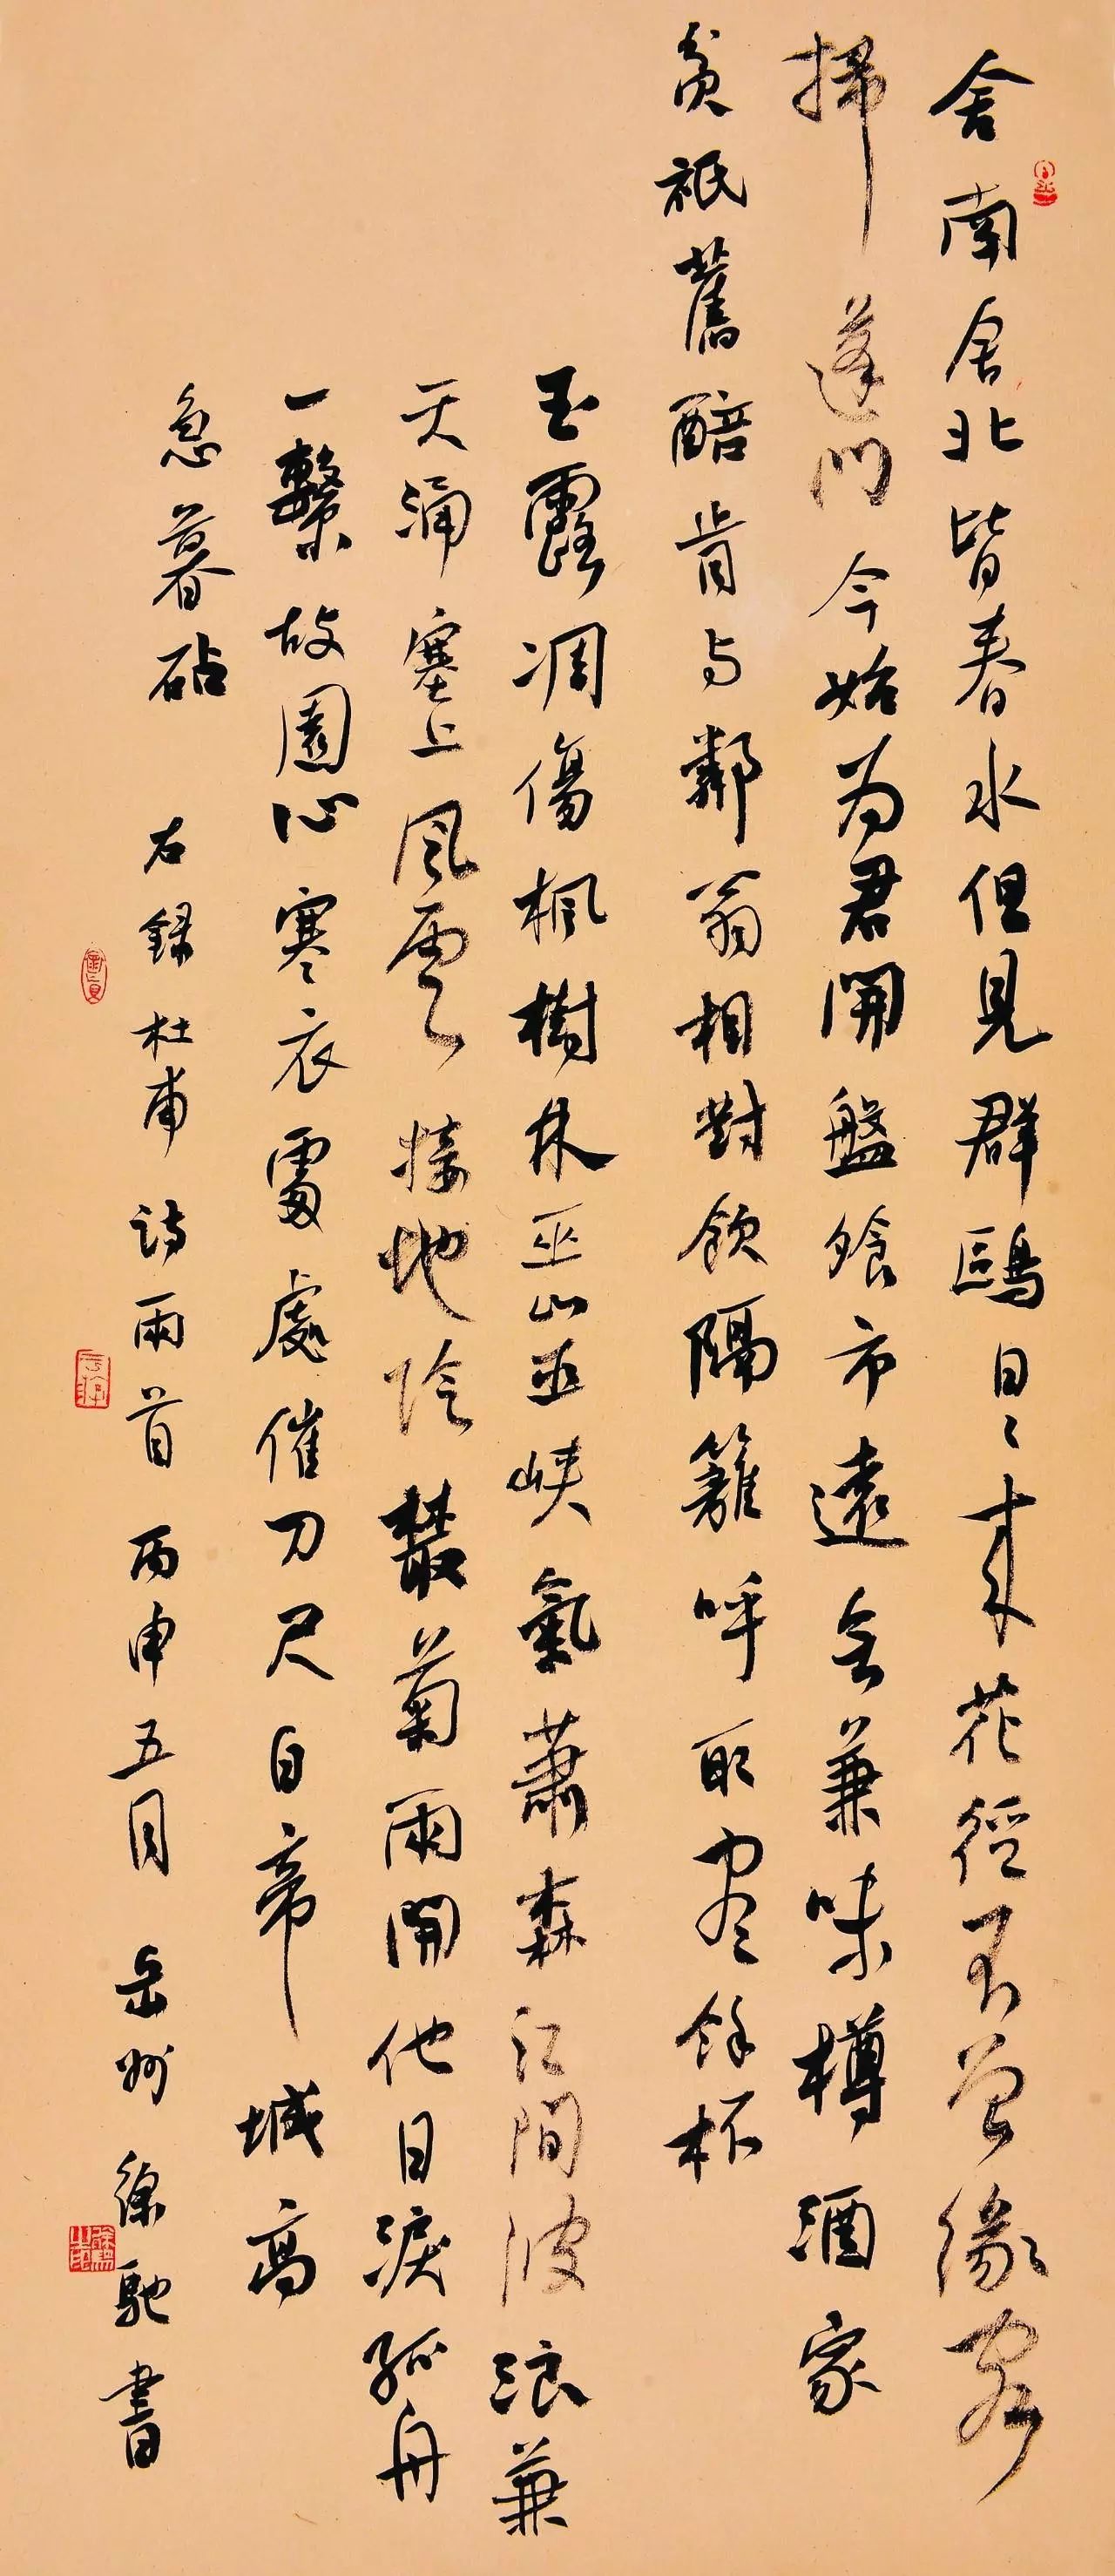 舍南舍北皆春水但見群鷗日〻来花徑不曾緣客
掃蓬門今始為君開盤飧市遠無兼味樽酒家
貧祇舊醅肯与鄰翁相對飲隔籬呼取尽餘杯
玉露凋傷楓樹林巫山巫峽氣蕭森江間波浪兼
天涌塞上風雲接地陰叢菊兩開他日淚孤舟
一繫故園心寒衣處處催刀尺白帝城高
急暮砧 右録杜甫詩兩首 丙申五月 岳州 徐馳書